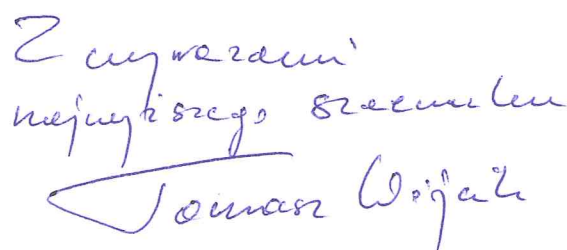 Z wyrazami
najwyższego szacunku
Tomasz Wójcik